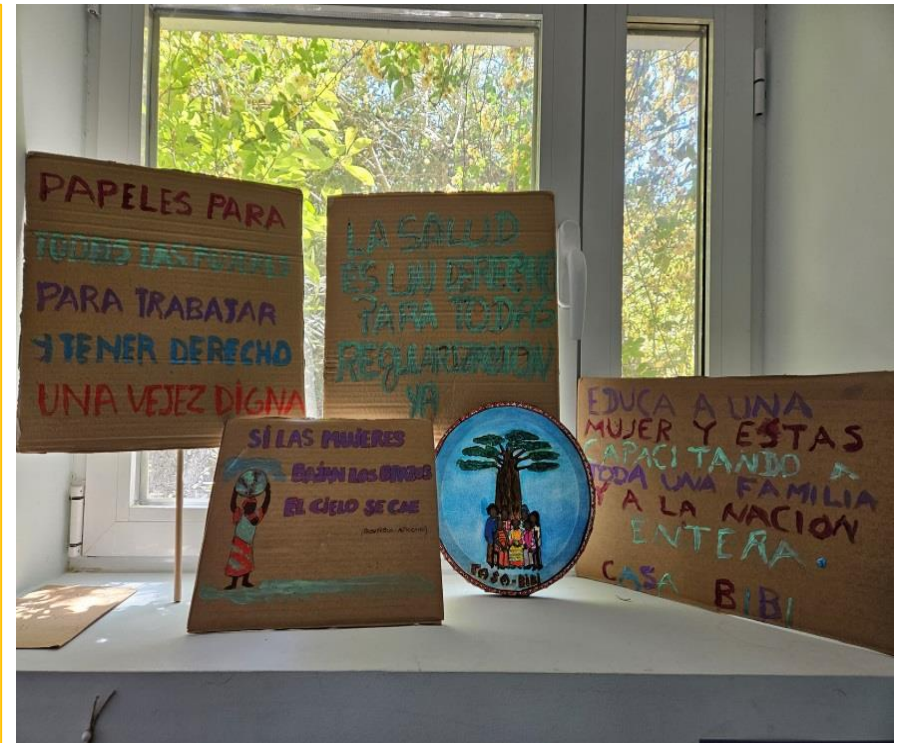 PAPELES PARA
TODAS LAS
PARA TRABAJAR
Y TENER DERECHO
UNA VEJEZ DIGNA
LA SALUD
ES UN DERECHO
PARA TODAS
REGULARIZACION
YA
SÍ LAS MUJERES
BAJAN LOS BRAZOS
EL CIELO SE CAE
CASA-BIBI
EDUCA A UNA
MUJER Y ESTAS
CAPACITANDO A
TODA UNA FAMILIA
Y A LA NACION
ENTERA.
CASA BIBI